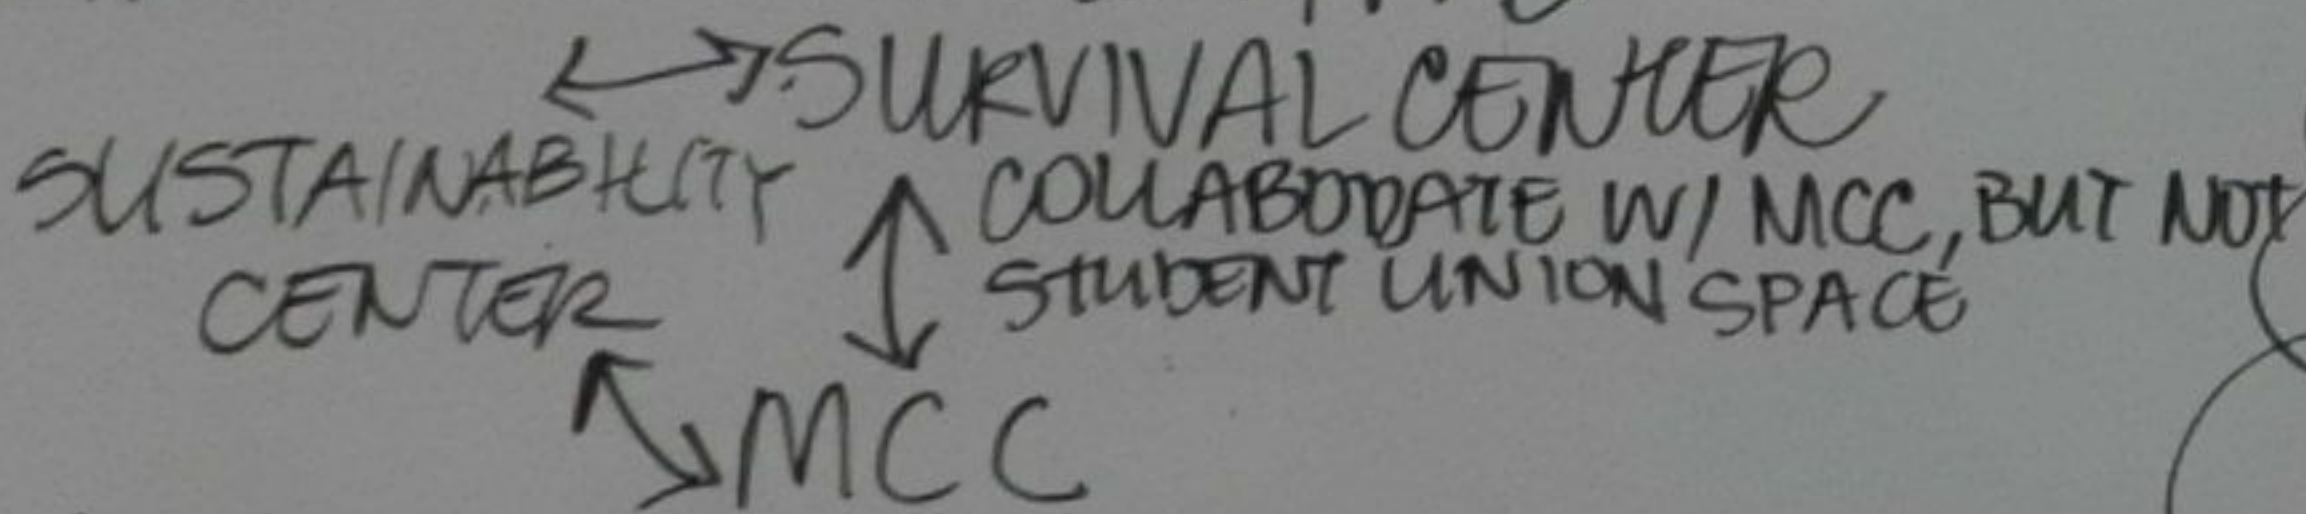 SURVIVAL CENTER
SUSTAINABILITY
CENTER
COLLABODATE W/ MCC, BUT NOT
STUDENT UNION SPACE
MCC